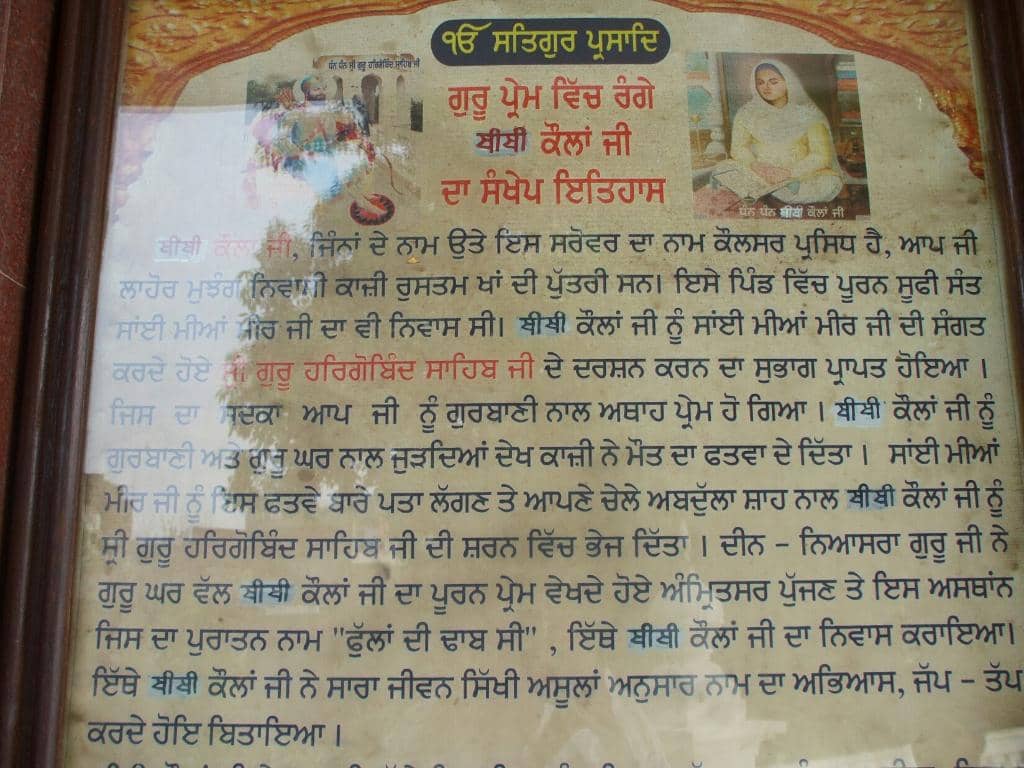 ੴ ਸਤਿਗੁਰ ਪ੍ਰਸਾਦਿ
ਧੰਨ ਧੰਨ ਸ੍ਰੀ ਗੁਰੂ ਹਰਿਗੋਬਿੰਦ ਸਾਹਿਬ ਜੀ
ਗੁਰੂ ਪ੍ਰੇਮ ਵਿੱਚ ਰੰਗੇ
ਬੀਬੀ ਕੌਲਾਂ ਜੀ
ਦਾ ਸੰਖੇਪ ਇਤਿਹਾਸ
ਧੰਨ ਧੰਨ ਬੀਬੀ ਕੌਲਾਂ ਜੀ
ਬੀਬੀ ਕੌਲਾਂ ਜੀ, ਜਿੰਨਾਂ ਦੇ ਨਾਮ ਉਤੇ ਇਸ ਸਰੋਵਰ ਦਾ ਨਾਮ ਕੌਲਸਰ ਪ੍ਰਸਿਧ ਹੈ, ਆਪ ਜੀ
ਲਾਹੋਰ ਮੁਝੰਗ ਨਿਵਾਸੀ ਕਾਜ਼ੀ ਰੁਸਤਮ ਖਾਂ ਦੀ ਪੁੱਤਰੀ ਸਨ। ਇਸੇ ਪਿੰਡ ਵਿੱਚ ਪੂਰਨ ਸੂਫੀ ਸੰਤ
ਸਾਂਈ ਮੀਆਂ ਮੀਰ ਜੀ ਦਾ ਵੀ ਨਿਵਾਸ ਸੀ। ਬੀਬੀ ਕੌਲਾਂ ਜੀ ਨੂੰ ਸਾਂਈ ਮੀਆਂ ਮੀਰ ਜੀ ਦੀ ਸੰਗਤ
ਕਰਦੇ ਹੋਏ ਸ੍ਰੀ ਗੁਰੂ ਹਰਿਗੋਬਿੰਦ ਸਾਹਿਬ ਜੀ ਦੇ ਦਰਸ਼ਨ ਕਰਨ ਦਾ ਸੁਭਾਗ ਪ੍ਰਾਪਤ ਹੋਇਆ ।
ਜਿਸ ਦਾ ਸਦਕਾ ਆਪ ਜੀ ਨੂੰ ਗੁਰਬਾਣੀ ਨਾਲ ਅਥਾਹ ਪ੍ਰੇਮ ਹੋ ਗਿਆ । ਬੀਬੀ ਕੌਲਾਂ ਜੀ ਨੂੰ
ਗੁਰਬਾਣੀ ਅਤੇ ਗੁਰੂ ਘਰ ਨਾਲ ਜੁੜਦਿਆਂ ਦੇਖ ਕਾਜ਼ੀ ਨੇ ਮੌਤ ਦਾ ਫਤਵਾ ਦੇ ਦਿੱਤਾ । ਸਾਂਈ ਮੀਆਂ
ਮੀਰ ਜੀ ਨੂੰ ਇਸ ਫਤਵੇ ਬਾਰੇ ਪਤਾ ਲੱਗਣ ਤੇ ਆਪਣੇ ਚੇਲੇ ਅਬਦੁੱਲਾ ਸ਼ਾਹ ਨਾਲ ਬੀਬੀ ਕੌਲਾਂ ਜੀ ਨੂੰ
ਸ੍ਰੀ ਗੁਰੂ ਹਰਿਗੋਬਿੰਦ ਸਾਹਿਬ ਜੀ ਦੀ ਸ਼ਰਨ ਵਿੱਚ ਭੇਜ ਦਿੱਤਾ । ਦੀਨ - ਨਿਆਸਰਾ ਗੁਰੂ ਜੀ ਨੇ
ਗੁਰੂ ਘਰ ਵੱਲ ਬੀਬੀ ਕੌਲਾਂ ਜੀ ਦਾ ਪੂਰਨ ਪ੍ਰੇਮ ਵੇਖਦੇ ਹੋਏ ਅੰਮ੍ਰਿਤਸਰ ਪੁੱਜਣ ਤੇ ਇਸ ਅਸਥਾਂਨ
ਜਿਸ ਦਾ ਪੁਰਾਤਨ ਨਾਮ "ਫੁੱਲਾਂ ਦੀ ਢਾਬ ਸੀ" , ਇੱਥੇ ਬੀਬੀ ਕੌਲਾਂ ਜੀ ਦਾ ਨਿਵਾਸ ਕਰਾਇਆ।
ਇੱਥੇ ਬੀਬੀ ਕੌਲਾਂ ਜੀ ਨੇ ਸਾਰਾ ਜੀਵਨ ਸਿੱਖੀ ਅਸੂਲਾਂ ਅਨੁਸਾਰ ਨਾਮ ਦਾ ਅਭਿਆਸ, ਜੱਪ - ਤੱਪ
ਕਰਦੇ ਹੋਇ ਬਿਤਾਇਆ ।